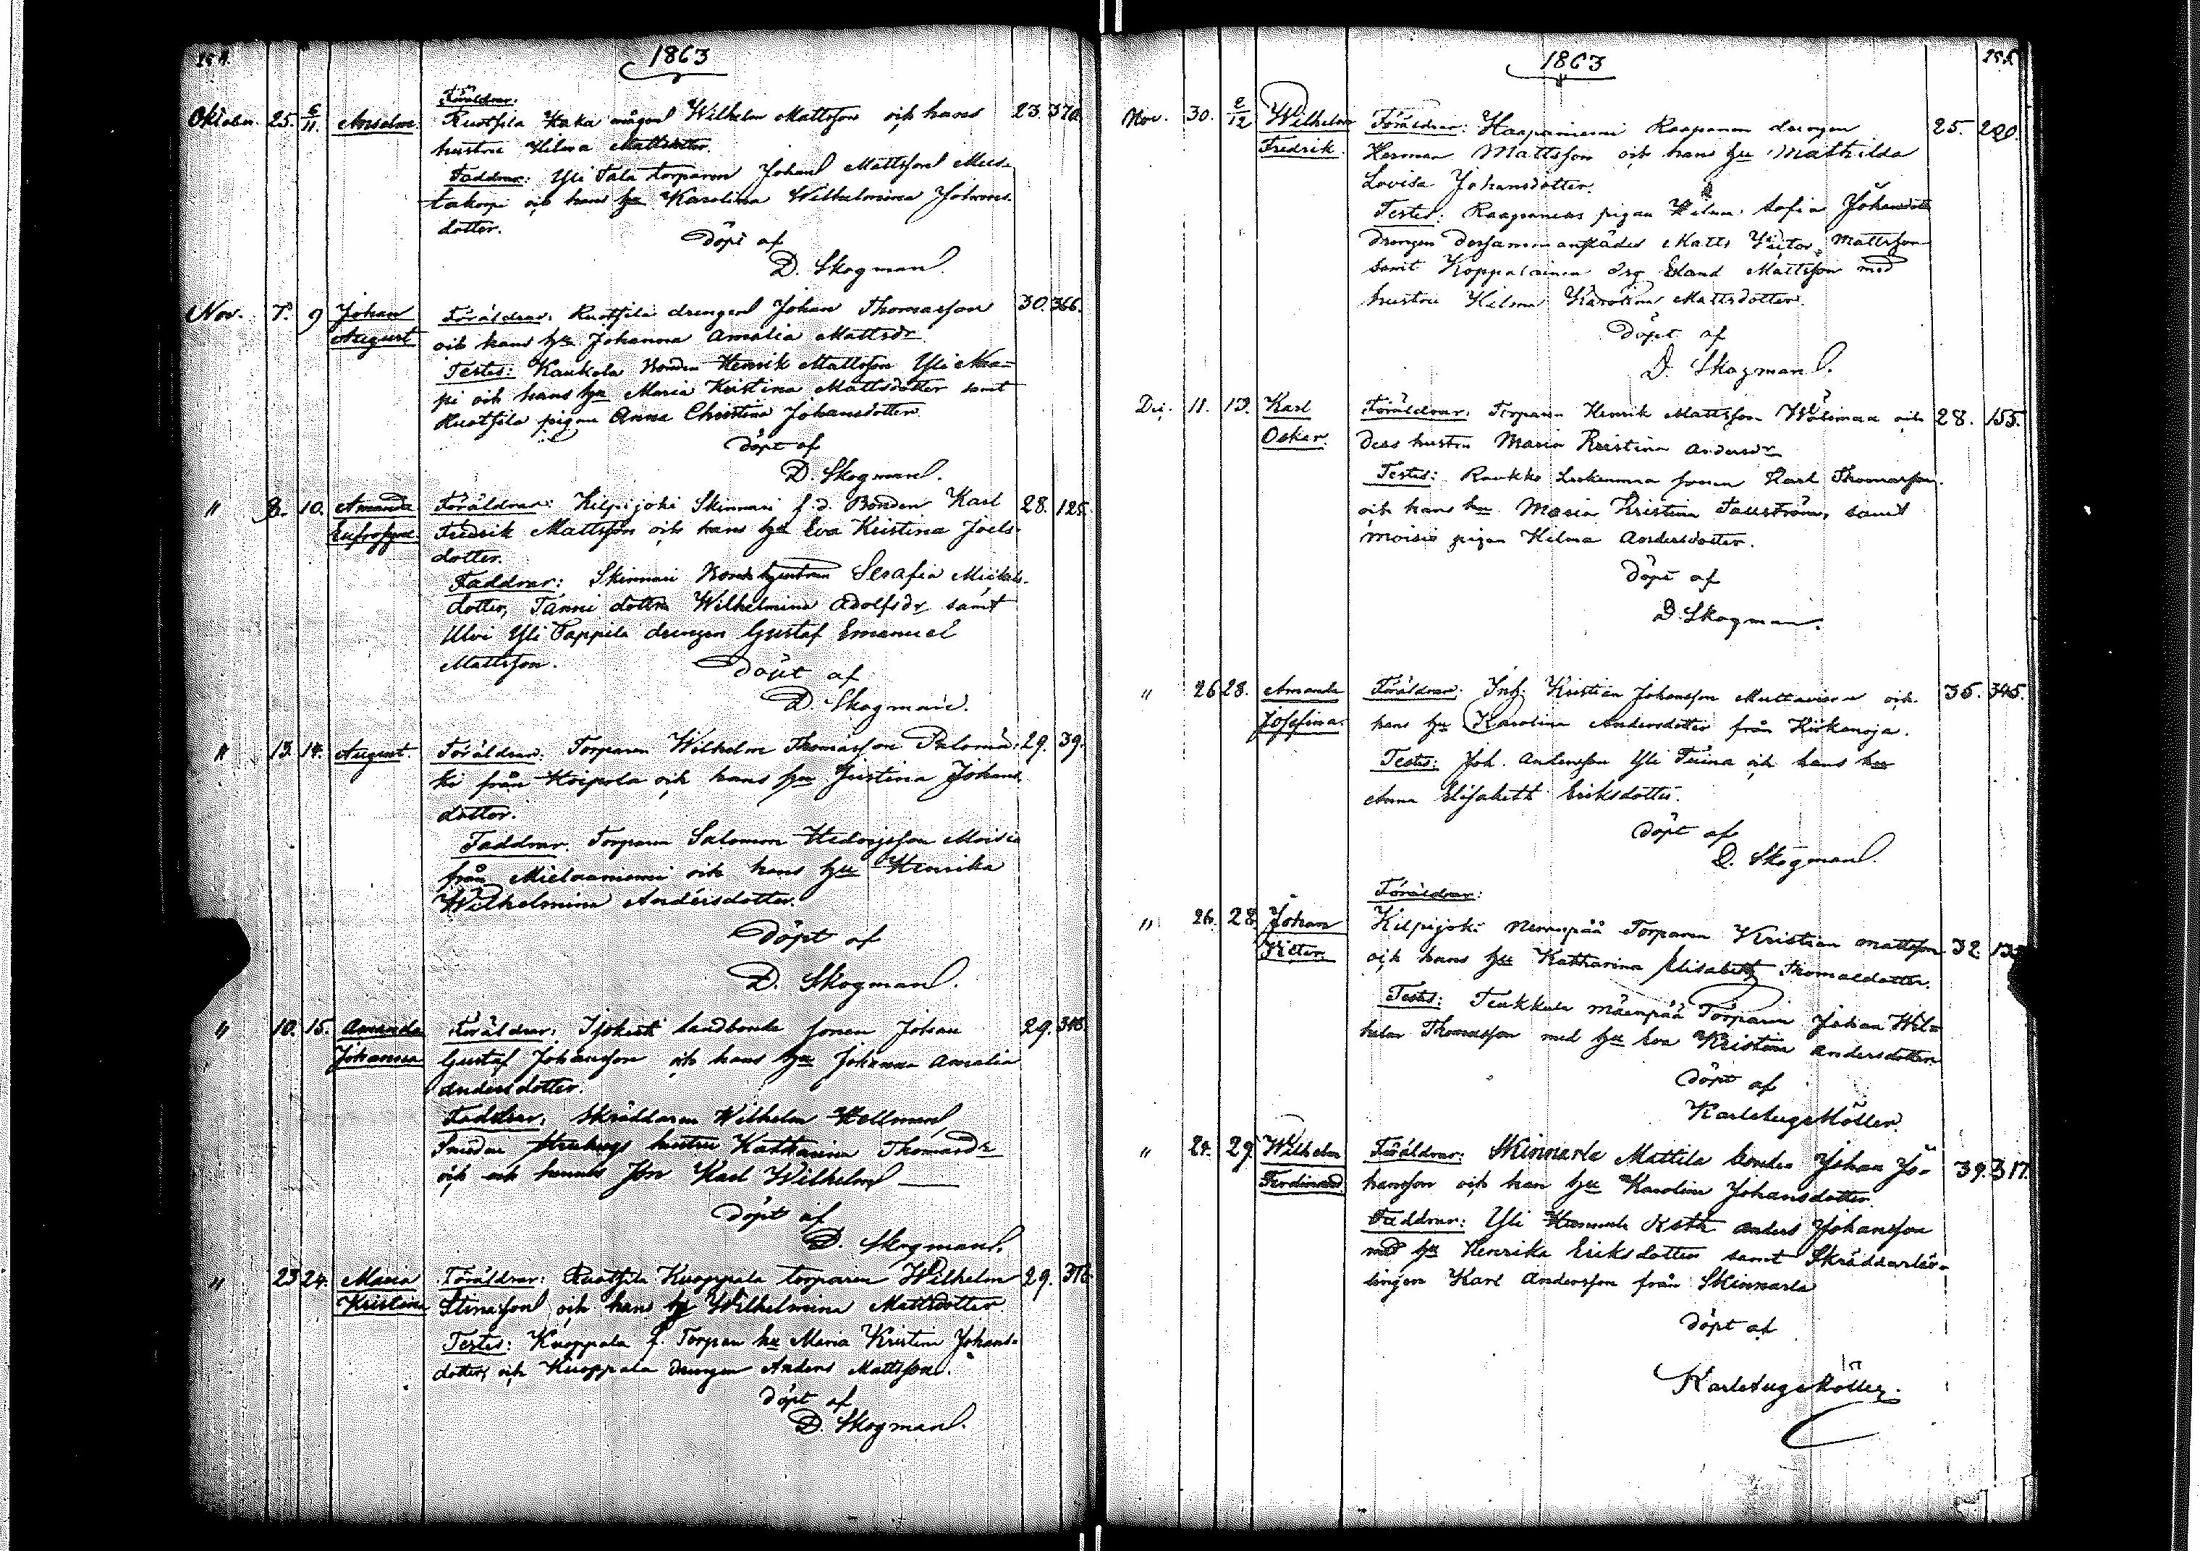 1863
Oktober. 25. 6/11. Anselm.
Föräldrar:
Ruotsila Kaka mågen Wilhelm Mattsson och hans 23. 370.
hustru Hilma Mattsdotter.
Faddrar: Yli Tala torparen Johan Mattsson
och hans hu Karolina Wilhelmina Johans-
dotter.
Döpt af
D. Skogman.
Nov. 7. 9 Johan August
Föräldrar: Ruotsila drengen Johan Thomasson 30. 366.
och hans hu Johanna Amalia Mattsdr
Testes: Kaukola Bonden Henrik Mattsson Yli Naa-
pi och hans hu Maria Kristina Mattsdotter samt
Ruotsila pigan Anna Christina Johansdotter.
Döpt af
D. Skogman.
" 8. 10. Amanda Eufrosyne.
Föräldrar: Kilpijoki Skinnari f.d. Bonden Karl 28. 125.
Fredrik Mattsson och hans hu Eva Kristina Joels-
dotter.
Faddrar: Skinnari Serafia Mickels-
dotter, Tanni dottern Wilhelmina Adolfsdr samt
Ulvi Yli Pappila drengen Gustaf Emanuel
Mattsson.
Döpt af
D. Skogman.
" 13. 14. August.
Föräldrar: Torparen Wilhelm Thomasson Palomä- 29. 39.
ki från Koipola och hans hu Justina Johans
dotter.
Faddrar. Torparen Salomon Moisio
från och hans hu Henrika
Wilhelmina Andersdotter.
Döpt af
D. Skogman.
" 10. 15. Amanda Johanna
Föräldrar: landbonde sonen Johan 29.
Gustaf Johansson och hans hu Johanna Amalia
Andersdotter.
Faddrar: Skräddaren Wilhelm Hellman,
Smeden hustru Katharina Thomasdr
och Son Karl Wilhelm
Döpt af
D. Skogman.
" 23 24. Maria Kristina
Föräldrar: Ruotsila Kuoppala torparen Wilhelm 29.
Stenasson och hans hu Wilhelmina Mattsdotter
Testes: Kuoppala f. Torpare hu Maria Kristina Johans-
dotter, och Kuoppala drengen Anders Mattsson.
Döpt af
D. Skogman.
1863
Nov. 30. 2/12 Wilhelm Fredrik.
Föräldrar: Haaparniemi Raapanan drengen 25. 220.
Herman Mattsson och hans hu Mathilda
Lovisa Johansdotter.
Testes: pigan Hilma Sofia Johansdotr
drengen dersammanstädes Matts Victor Mattsson
samt Koppalainen drg Mattsson med
hustru Hilma Karolina Mattsdotter.
Döpt af
D. Skogman.
Dec. 11. 13. Karl Oskar.
Föräldrar: Torparen Henrik Mattsson och 28. 155.
dess hustru Maria Kristina Andersdr
Testes: Raukko sonen Karl Thomasson.
och hans hu Maria Kristina Tallström, samt
Moisio pigan Hilma Andersdotter.
Döpt af
D. Skogman.
" 26 28. Amanda Josefina.
Föräldrar: Inh. Kristian Johansson och 35. 345.
hans hu Karolina Andersdotter från Kirkanoja.
Testes: Joh. Andersson Yli och hans hu
Anna Elisabeth Eriksdotter.
Döpt af
D. Skogman.
" 26. 28. Johan Victor.
Föräldrar:
Kilpijoki Nummipää Torparen Kristian Mattsson 32.
och hans hu Katharina Elisabeth Thomasdotter.
Testes: Teukkula Mäenpää Torparen Johan Wil-
helm Thomasson med hu Eva Kristina Andersdotter.
Döpt af
Karl Aug. Möller.
" 24. 29. Wilhelm Ferdinand.
Föräldrar: Skinnarla Mattila bonden Johan Jo- 39. 317.
hansson och han hu Karolina Johansdotter.
Faddrar: Yli Anders Johansson
med hu Henrika Eriksdotter samt Skräddarlär-
lingen Karl Andersson från Skinnarla
Döpt af
Karl Aug. Möller.